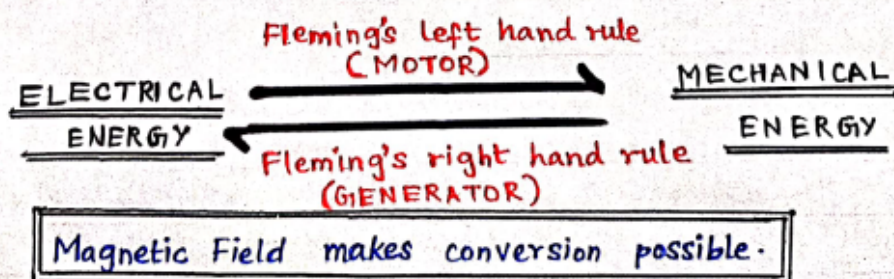 Fleming's left hand rule
(MOTOR)
ELECTRICAL
ENERGY
MECHANICAL
ENERGY
Fleming's right hand rule
(GENERATOR)
Magnetic Field makes conversion possible.